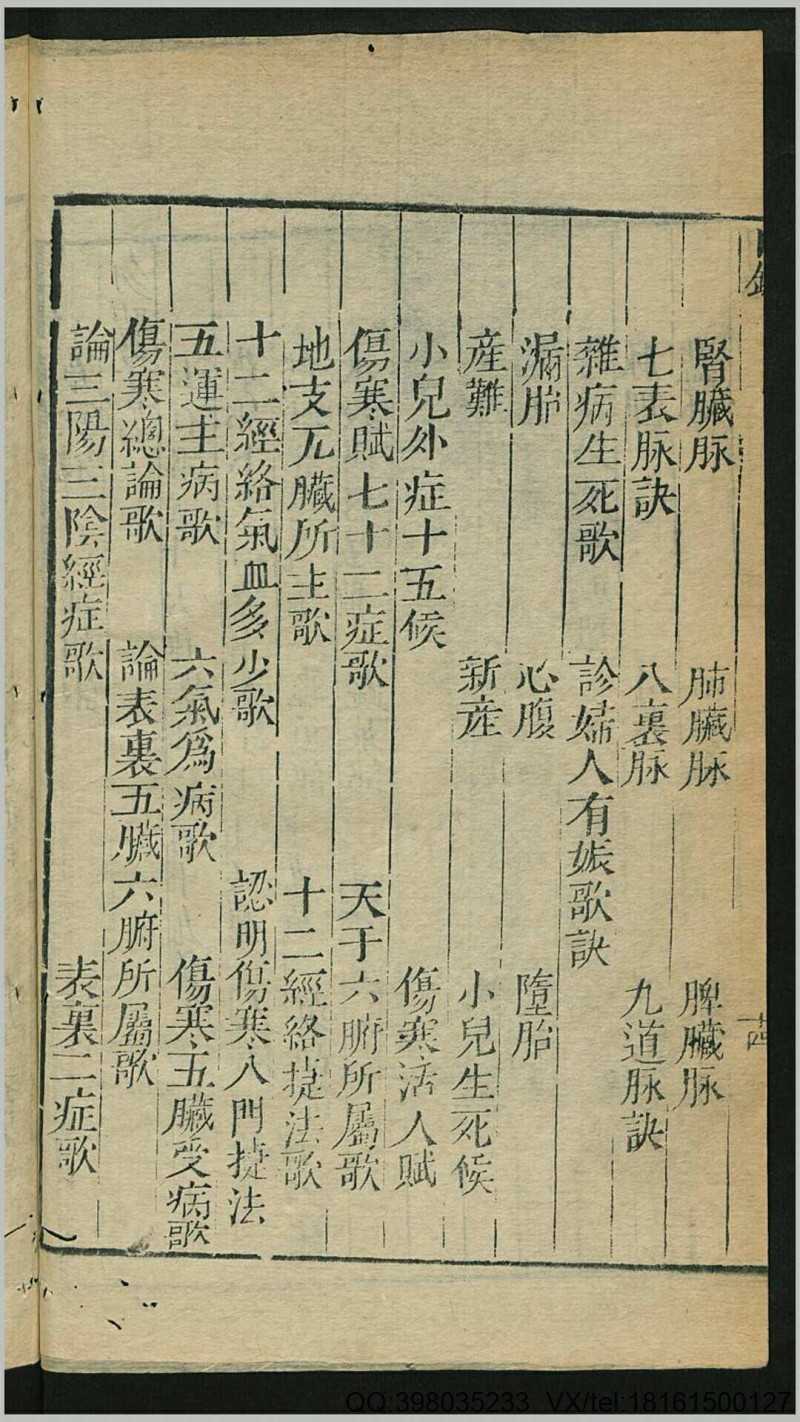 目錄
十四
腎臟脉 肺臟脉 脾臟脉
七表脉訣 八裏脉 九道脉訣
雜病生死歌 診婦人有娠歌訣
漏胎 心腹 墮胎
產難 新產 小兒生死候
小兒外症十五候 傷寒活人賦
傷寒賦七十二症歌 天干六腑所屬歌
地支兀臟所主歌 十二經絡捷法歌
十二經絡氣血多少歌 認明傷寒八門捷法
五運主病歌 六氣爲病歌 傷寒五臟受病歌
傷寒總論歌 論表裏五臟六腑所屬歌
論三陽三陰經症歌 表裏二症歌
QQ:398035233 VX/tel:18161500127